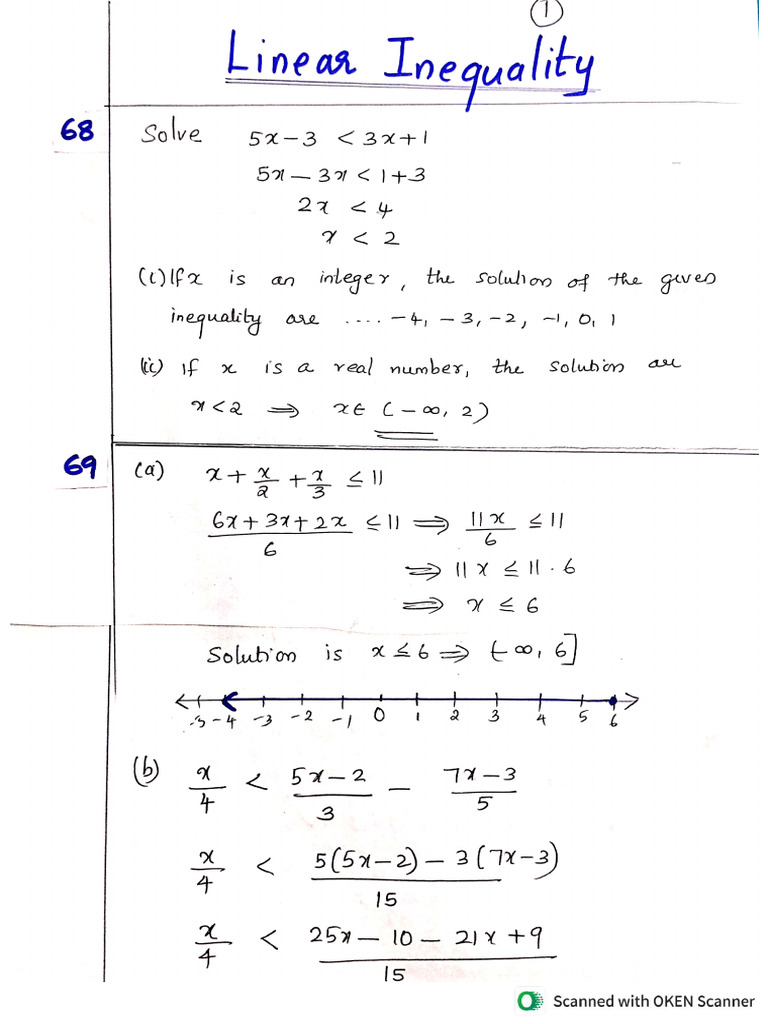 1
Linear Inequality
68 Solve 5x-3 < 3x+1
5x - 3x < 1+3
2x < 4
x < 2
(i) If x is an integer, the solution of the given
inequality are .... -4, -3, -2, -1, 0, 1
(ii) If x is a real number, the solution are
x<2 ⟹ x∈ (-∞, 2)
69 (a) x + x/2 + x/3 ≤ 11
(6x + 3x + 2x)/6 ≤ 11 ⟹ 11x/6 ≤ 11
⟹ 11x ≤ 11·6
⟹ x ≤ 6
Solution is x ≤ 6 ⟹ (-∞, 6]
-3 -4 -3 -2 -1 0 1 2 3 4 5 6
(b) x/4 < (5x-2)/3 - (7x-3)/5
x/4 < (5(5x-2) - 3(7x-3))/15
x/4 < (25x - 10 - 21x + 9)/15
Scanned with OKEN Scanner